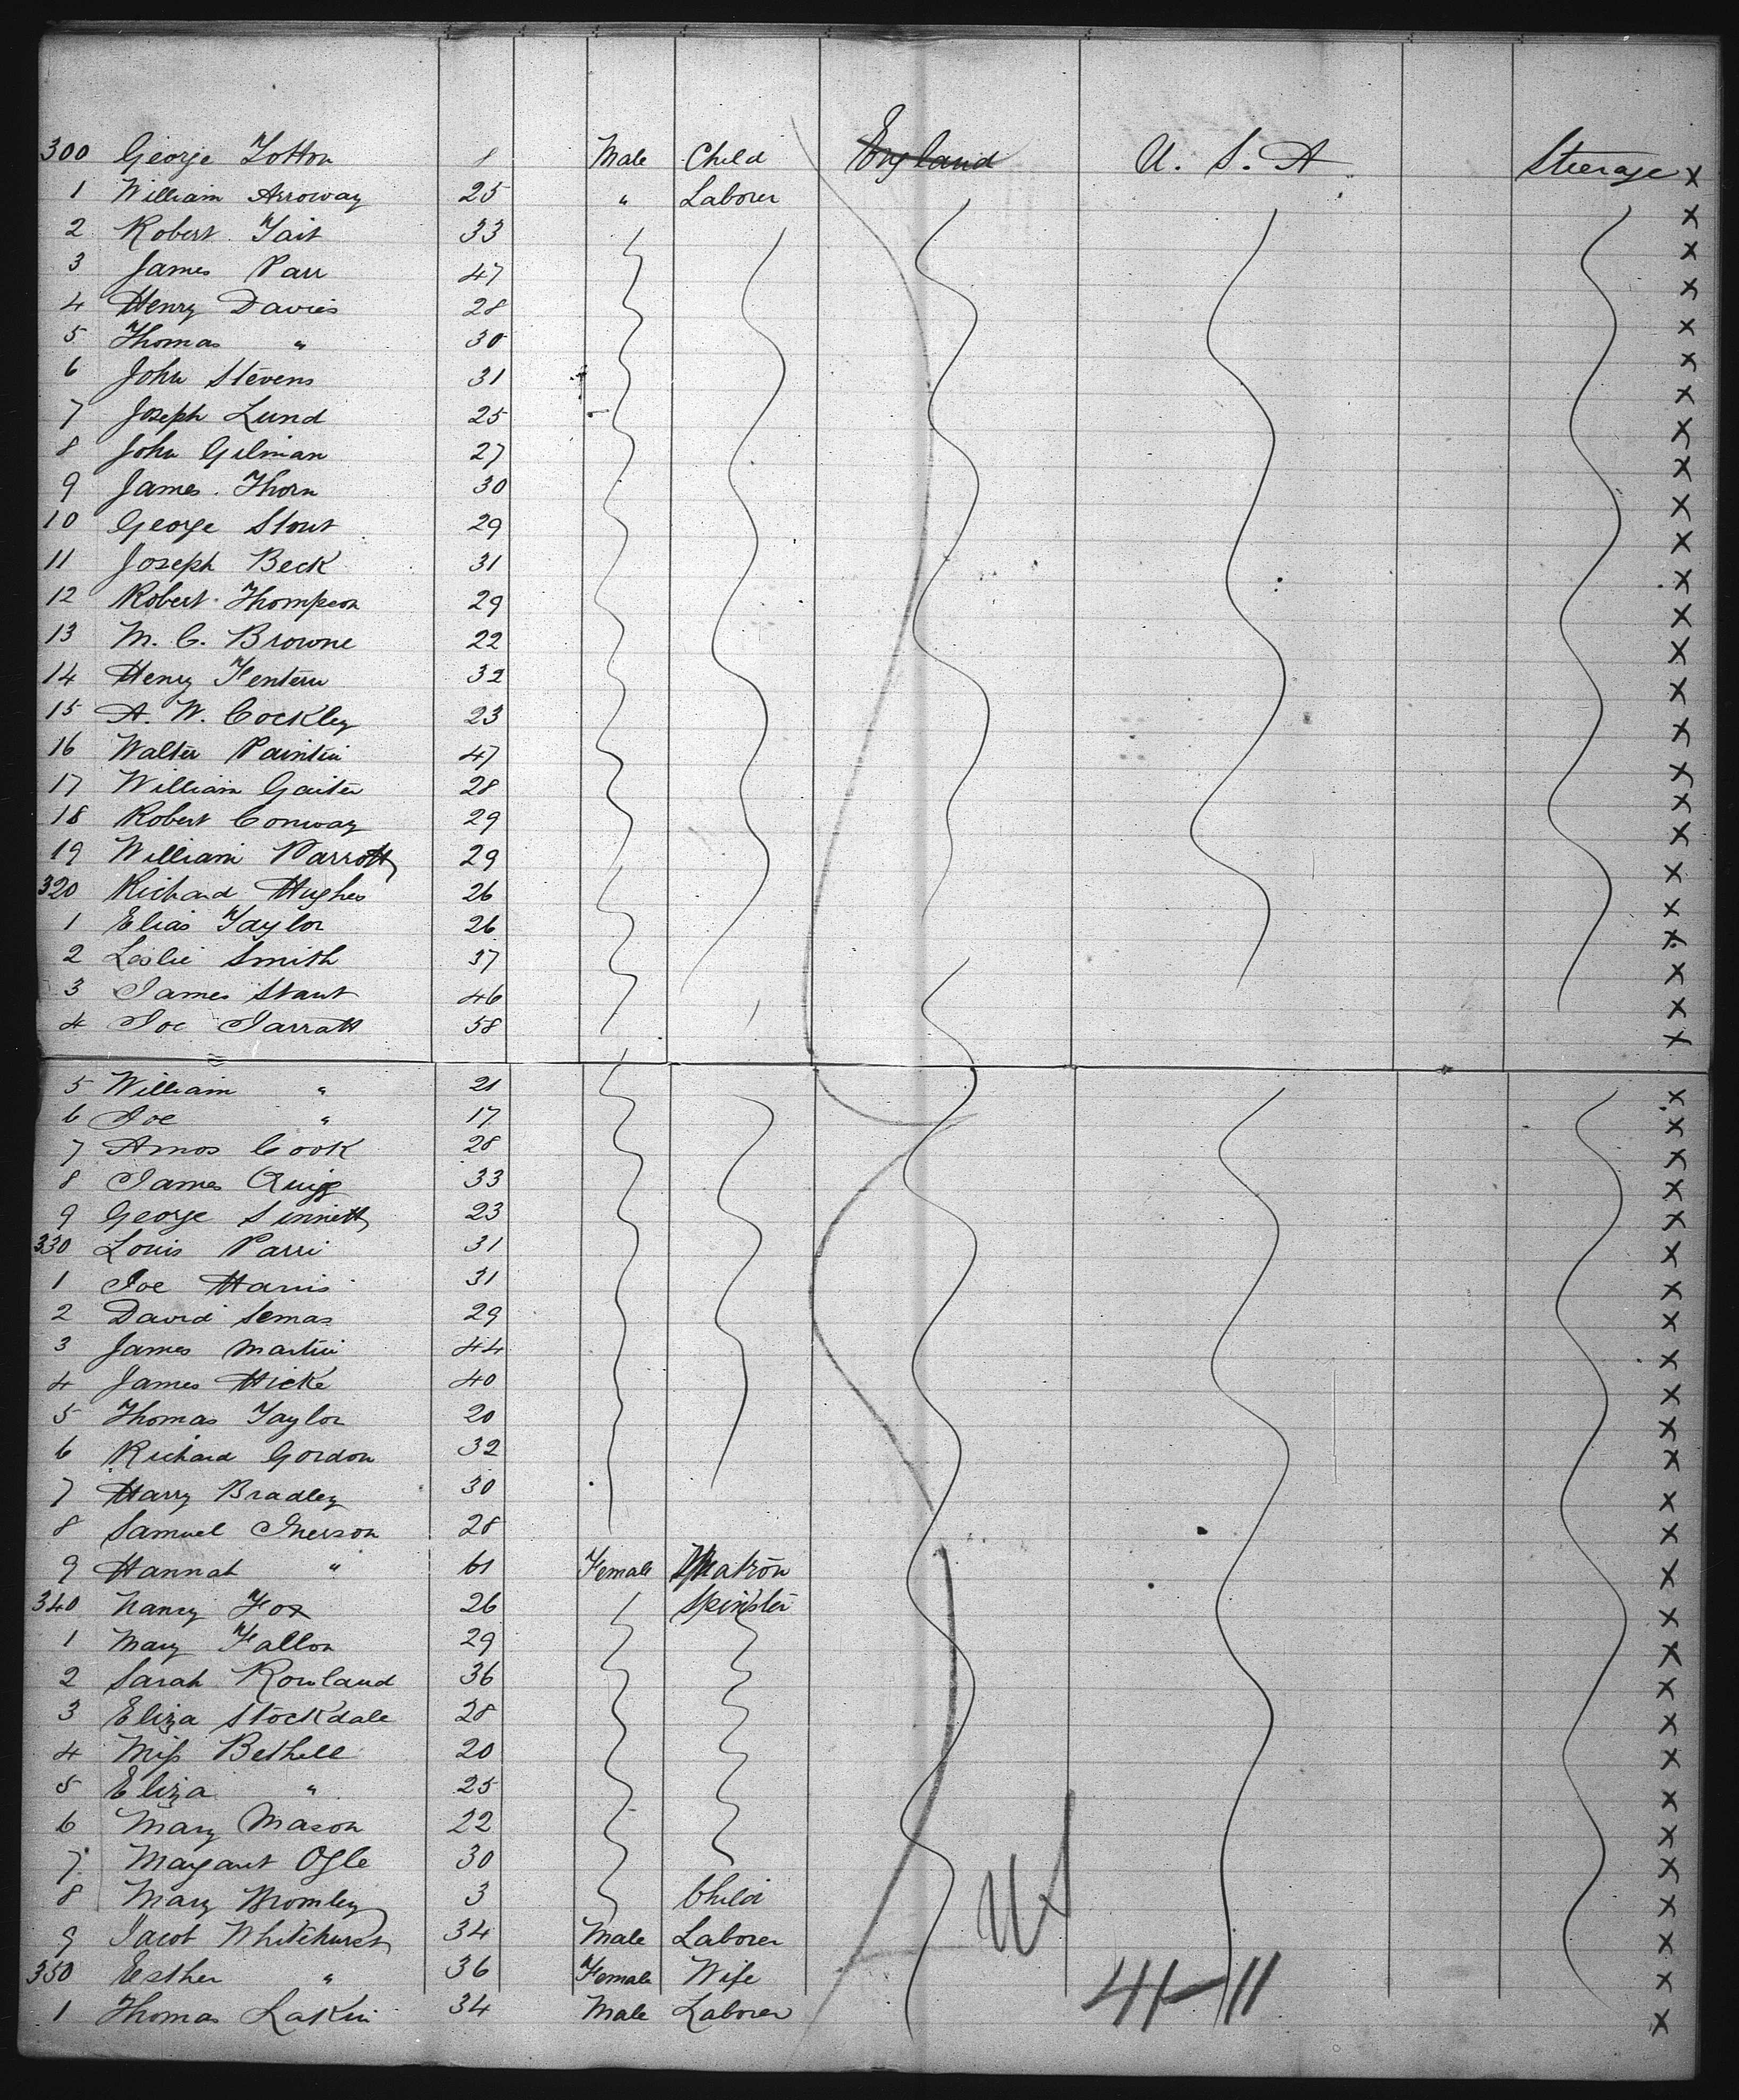 300 George Totton 8 Male Child England U. S. A. Steerage X
1 William Arroway 25 " Laborer X
2 Robert Tait 33 X
3 James Parr 47 X
4 Henry Davies 28 X
5 Thomas " 30 X
6 John Stevens 31 X
7 Joseph Lund 25 X
8 John Gilman 27 X
9 James Thorn 30 X
10 George Stout 29 X
11 Joseph Beck 31 X
12 Robert Thompson 29 X
13 M. C. Browne 22 X
14 Henry 32 X
15 A. W. Cockley 23 X
16 Walter 47 X
17 William Gaiter 28 X
18 Robert Conway 29 X
19 William Parrott 29 X
320 Richard Hughes 26 X
1 Elias Taylor 26 X
2 Leslie Smith 37 X
3 James Staut 46 X
4 Joe Jarratt 58 X
5 William " 21 X
6 Joe " 17 X
7 Amos Cook 28 X
8 James Quigg 33 X
9 George Sinnett 23 X
330 Louis Parri 31 X
1 Joe Harris 31 X
2 David Semas 29 X
3 James Martin 44 X
4 James Hicke 40 X
5 Thomas Taylor 20 X
6 Richard Gordon 32 X
7 Harry Bradley 30 X
8 Samuel 28 X
9 Hannah " 61 Female Matron X
340 Nancy Fox 26 Spinster X
1 Mary Fallon 29 X
2 Sarah Rowland 36 X
3 Eliza Stockdale 28 X
4 Miss Bethell 20 X
5 Eliza " 25 X
6 Mary Mason 22 X
7 Margaret Ogle 30 X
8 Mary Bromley 3 Child X
9 Jacob Whitehurst 34 Male Laborer X
350 Esther " 36 Female Wife X
1 Thomas Lakin 34 Male Laborer X
41-11